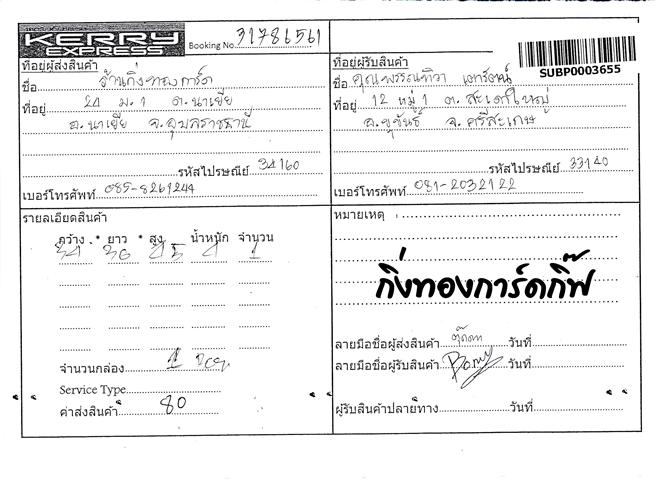 KERRY
EXPRESS
Booking No. 31786561
ที่อยู่ผู้ส่งสินค้า
ชื่อ ร้านกิ่งทองการ์ด
ที่อยู่ 24 ม.1 ต.นาเยีย
อ.นาเยีย จ.อุบลราชธานี
รหัสไปรษณีย์ 34160
เบอร์โทรศัพท์ 085-8261244
ที่อยู่ผู้รับสินค้า
SUBP0003655
ชื่อ คุณพรรณทิวา
ที่อยู่ 12 หมู่ 1 ต. สะเดาใหญ่
อ.ขุขันธ์ จ. ศรีสะเกษ
รหัสไปรษณีย์ 33140
เบอร์โทรศัพท์ 081-2032122
รายละเอียดสินค้า
กว้าง * ยาว * สูง น้ำหนัก จำนวน
จำนวนกล่อง 1
Service Type
ค่าส่งสินค้า 80
หมายเหตุ :
กิ่งทองการ์ดกิ๊ฟ
ลายมือชื่อผู้ส่งสินค้า วันที่
ลายมือชื่อผู้รับสินค้า วันที่
ผู้รับสินค้าปลายทาง วันที่